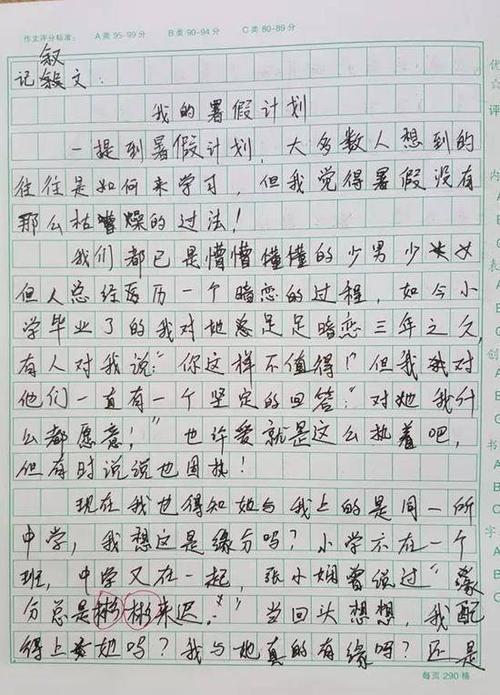 作文评分标准: A类 95-99分 B类 90-94分 C类 80-89分
叙
记文:
我的暑假计划
一提到暑假计划,大多数人想到的
往往是如何来学习,但我觉得暑假没有
那么枯燥的过法!
我们都已是懵懵懂懂的少男少女
但人总经历一个暗恋的过程,如今小
学毕业了的我对她足足暗恋三年之久,
有人对我说:“你这样不值得!”但我对
他们一直有一个坚定的回答:“对她我什
么都愿意!”也许爱就是这么执着吧,
但有时说说也固执!
现在我也得知她与我上的是同一所
中学,我想这是缘分吗?小学不在一个
班,中学又在一起,张小娴曾说过“缘
分总是彬彬来迟。”当回头想想,我配
得上她吗?我与她真的有缘吗?还是
每页 290 格
优
☆
评
内
A
B
C
表
A
B
C
创
A
B
C
书
A
B
C
字
A
B
C